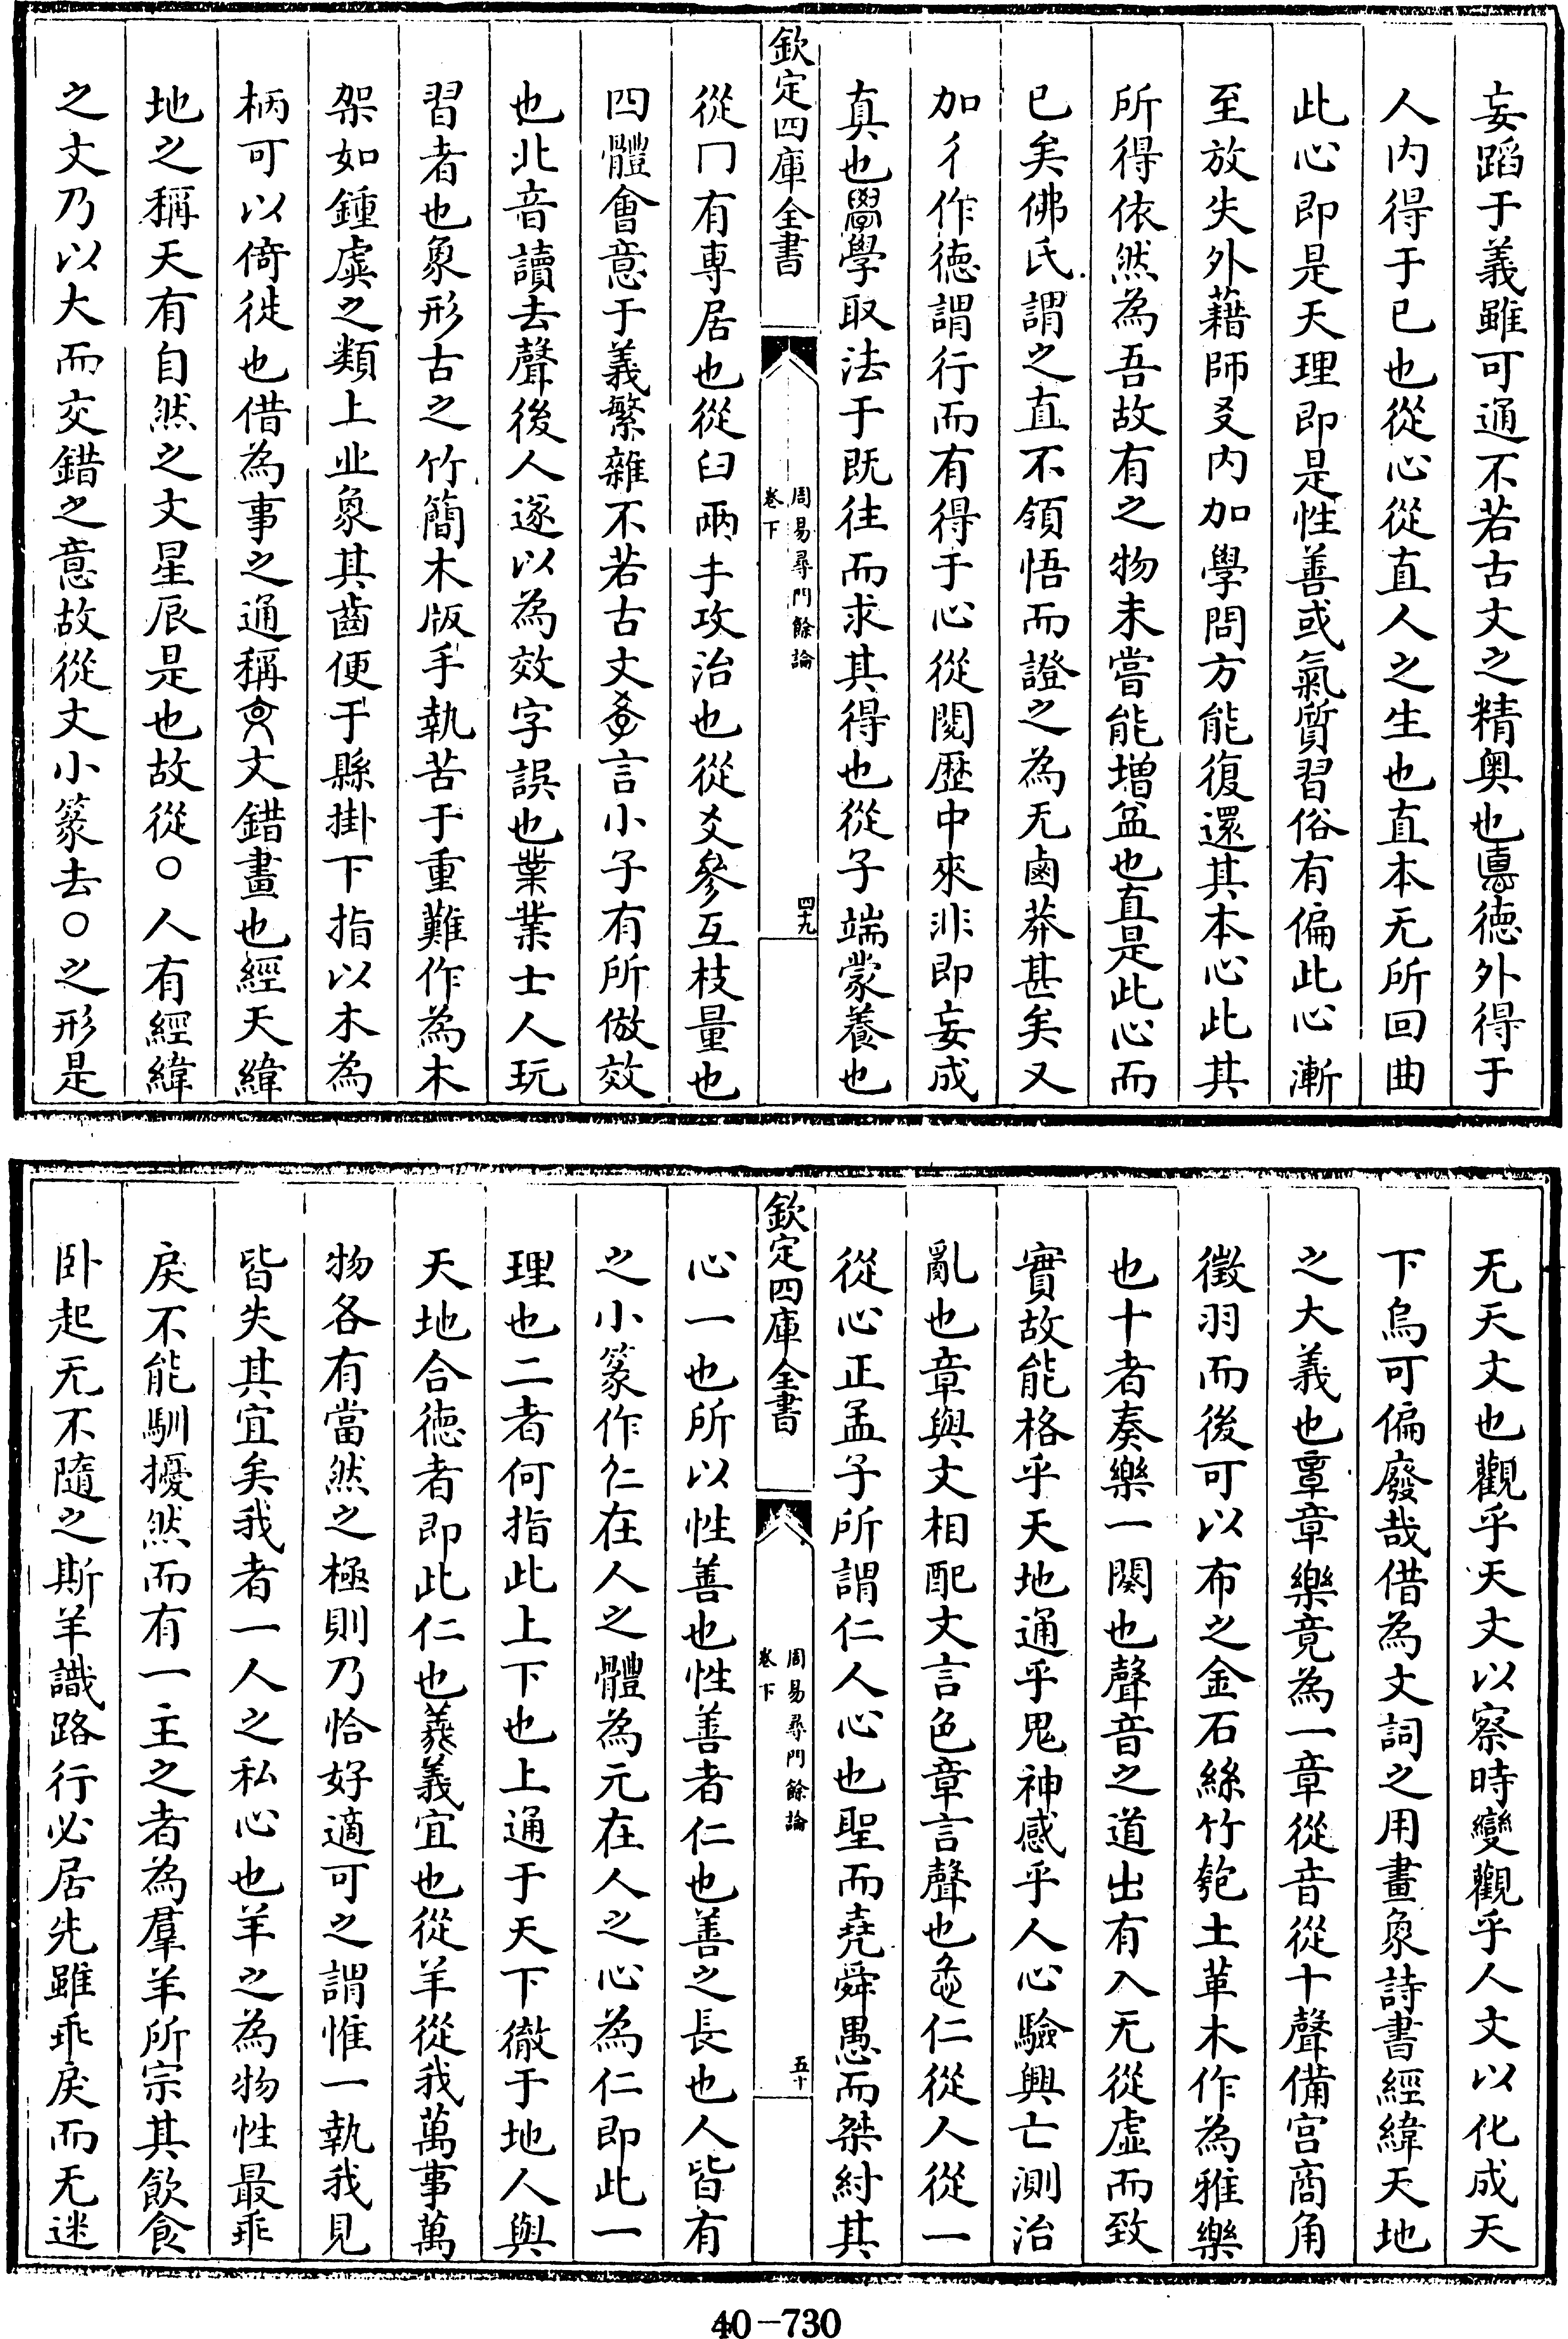 妄蹈于義雖可通不若古文之精奧也悳德外得于
人内得于已也從心從直人之生也直本无所回曲
此心即是天理即是性善或氣質習俗有偏此心漸
至放失外藉師爻内加學問方能復還其本心此其
所得依然為吾故有之物未嘗能增益也直是此心而
已矣佛氏謂之直不領悟而證之為无鹵莽甚矣又
加彳作德謂行而有得于心從閲歴中來非即妄成
真也學取法于既往而求其得也從子端蒙養也
欽定四庫全書
周易尋門餘論
卷下
四十九
從冂有專居也從臼兩手攻治也從爻參互枝量也
四體會意于義繁雜不若古文言小子有所倣效
也北音讀去聲後人遂以為效字誤也業業士人玩
習者也象形古之竹簡木版手執苦于重難作為木
架如鍾虡之類上业象其齒便于縣掛下指以木為
柄可以倚徙也借為事之通稱文錯畫也經天緯
地之稱天有自然之文星辰是也故從○人有經緯
之文乃以大而交錯之意故從文小篆去○之形是
无天文也觀乎天文以察時變觀乎人文以化成天
下烏可偏廢哉借為文詞之用畫象詩書經緯天地
之大義也章樂竟為一章從音從十聲備宫商角
徵羽而後可以布之金石絲竹匏土革木作為雅樂
也十者奏樂一闋也聲音之道出有入无從虛而致
實故能格乎天地通乎鬼神感乎人心驗興亡測治
亂也章與文相配文言色章言聲也仁從人從一
從心正孟子所謂仁人心也聖而堯舜愚而桀紂其
欽定四庫全書
周易尋門餘論
卷下
五十
心一也所以性善也性善者仁也善之長也人皆有
之小篆作仁在人之體為元在人之心為仁即此一
理也二者何指此上下也上通于天下徹于地人與
天地合德者即此仁也義宜也從羊從我萬事萬
物各有當然之極則乃恰好適可之謂惟一執我見
皆失其宜矣我者一人之私心也羊之為物性最乖
戾不能馴擾然而有一主之者為羣羊所宗其飲食
卧起无不隨之斯羊識路行必居先雖乖戾而无迷
40-730